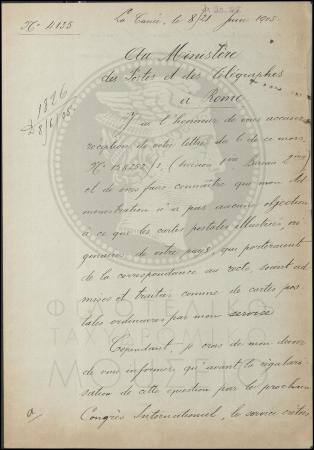 No 4135
La Canée, le 8/21 Juin 1905.
1826
8/6/05
Au Ministère
des Postes et des Télégraphes
à Rome
J'ai l'honneur de vous accuser
réception de votre lettre du 6 de ce mois,
No (Division 1ère Bureau 2me)
et de vous faire connaître que mon Ad
ministration n'a pas aucune objection
à ce que les cartes postales illustrées, ori
ginaires de votre pays, qui porteraient
de la correspondance au recto, soient ad
mises et traitées comme de cartes pos
tales ordinaires par mon service
Cependant je crois de mon devoir
de vous informer, qu'avant la régulari
sation de cette question par le prochain
Congrès International, le service crétois,
ΦΙΛΟΤΕΛΙΚΟ
ΤΑΧΥΔΡΟΜΙΚΟ
ΜΟΥΣΕΙΟ